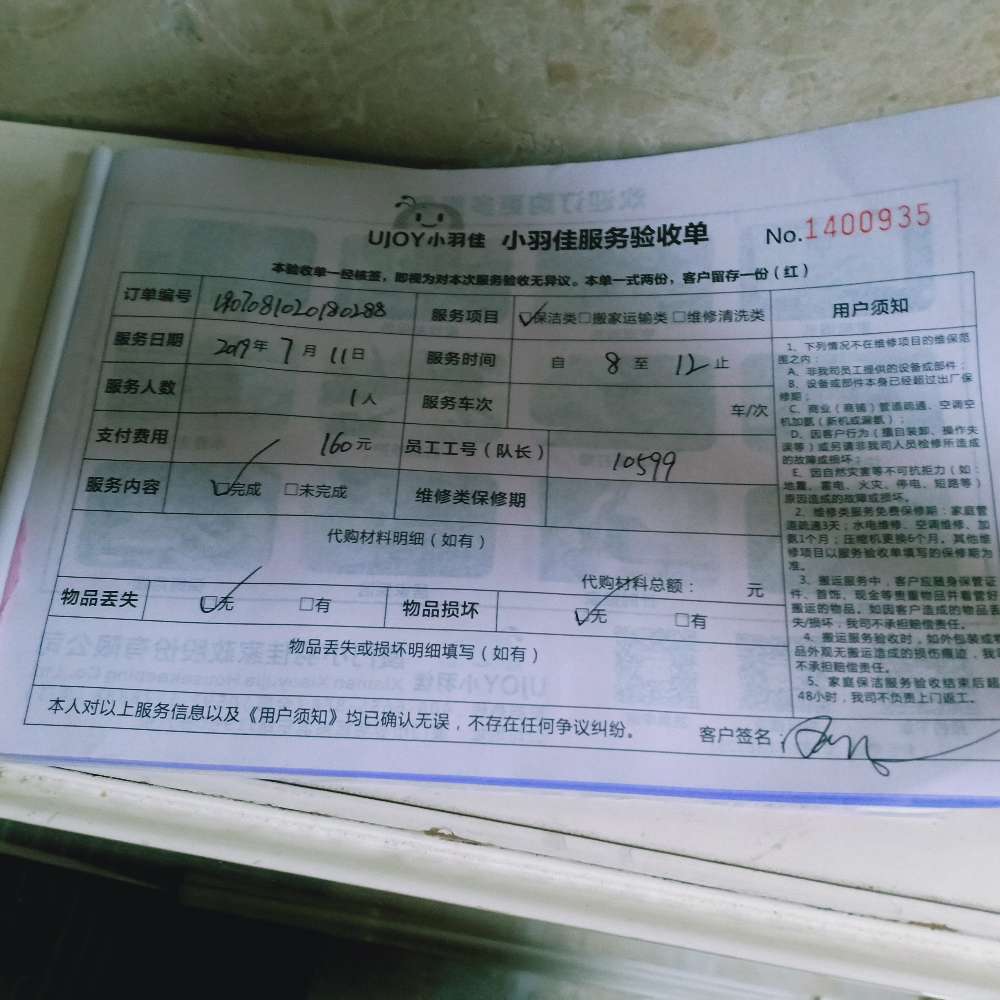 UJOY小羽佳 小羽佳服务验收单 No.1400935
本验收单一经核签，即视为对本次服务验收无异议。本单一式两份，客户留存一份（红）
订单编号 服务项目 保洁类 □搬家运输类 □维修清洗类
服务日期 2019年7月11日 服务时间 自 8 至 12 止
服务人数 1人 服务车次 车/次
支付费用 160元 员工工号（队长） 10599
服务内容 完成 □未完成 维修类保修期
代购材料明细（如有）
代购材料总额： 元
物品丢失 无 □有 物品损坏 无 □有
物品丢失或损坏明细填写（如有）
本人对以上服务信息以及《用户须知》均已确认无误，不存在任何争议纠纷。 客户签名：
用户须知
1、下列情况不在维修项目的维保范
围之内：
A、非我司员工提供的设备或部件；
B、设备或部件本身已经超过出厂保
修期；
C、商业（商铺）管道疏通、空调空
机加氨（新机或漏氨）；
D、因客户行为（擅自装卸、操作失
误等）或另请非我司人员检修所造成
的故障或损坏；
E、因自然灾害等不可抗拒力（如：
地震、雷电、火灾、停电、短路等）
原因造成的故障或损坏。
2、维修类服务免费保修期：家庭管
道疏通3天；水电维修、空调维修、加
氨1个月；压缩机更换6个月。其他维
修项目以服务验收单填写的保修期为
准。
3、搬运服务中，客户应随身保管证
件、首饰、现金等贵重物品并看管好
搬运的物品。如因客户造成的物品丢
失/损坏，我司不承担赔偿责任。
4、搬运服务验收时，如外包装或物
品外观无搬运造成的损伤痕迹，我司
不承担赔偿责任。
5、家庭保洁服务验收结束后超
48小时，我司不负责上门返工。